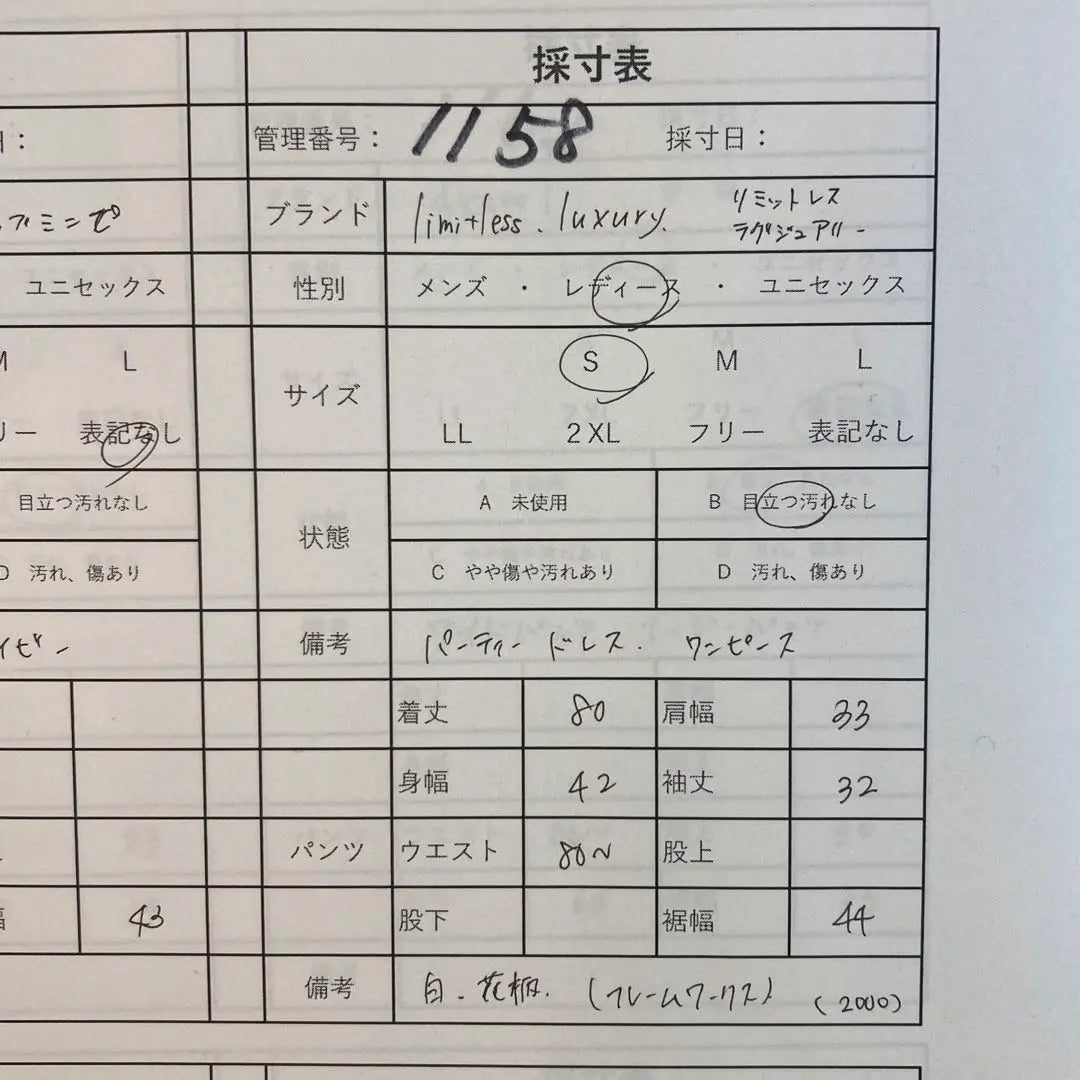 採寸表
管理番号： 1158 採寸日：
ブランド limitless. luxury. リミットレス
ラグジュアリー
性別 メンズ ・ レディース ・ ユニセックス
サイズ S M L
LL 2XL フリー 表記なし
状態 A 未使用 B 目立つ汚れなし
C やや傷や汚れあり D 汚れ、傷あり
備考 パーティードレス. ワンピース
着丈 80 肩幅 33
身幅 42 袖丈 32
パンツ ウエスト 80〜 股上
股下 裾幅 44
備考 白. 花柄. (フレームワークス) (2000)
ユニセックス
M L
リー 表記なし
目立つ汚れなし
D 汚れ、傷あり
43